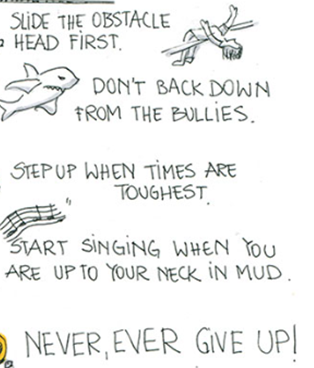 SLIDE THE OBSTACLE
HEAD FIRST.
DON'T BACK DOWN
FROM THE BULLIES.
STEP UP WHEN TIMES ARE
TOUGHEST.
START SINGING WHEN YOU
ARE UP TO YOUR NECK IN MUD.
NEVER, EVER GIVE UP!